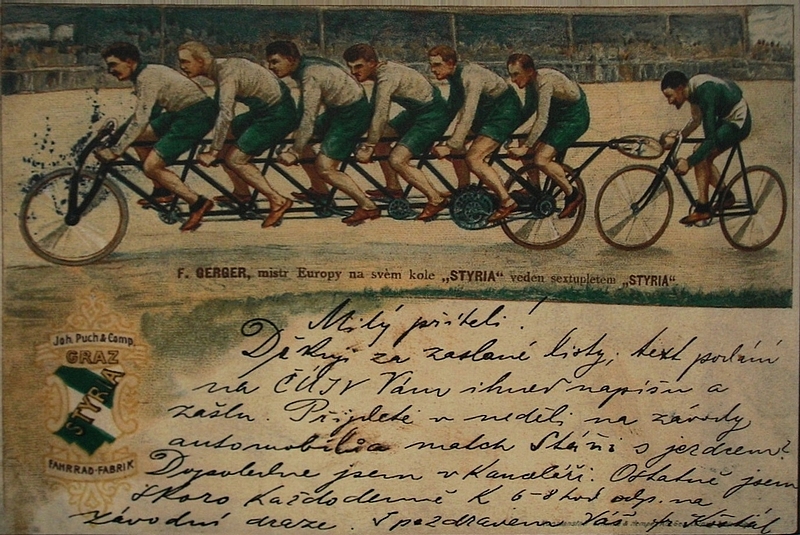 F. GERGER, mistr Evropy na svém kole „STYRIA“ veden sextupletem „STYRIA“
Joh. Puch & Comp.
GRAZ
STYRIA
FAHRRAD-FABRIK
Milý příteli!
Děkuji za zaslané listy, text podání
na ČÚJV Vám ihned napíšu a
zašlu. Přijdete v neděli na závody
automobilů a match s jezdcem?
Dopoledne jsem v kanceláři. Ostatně jsem
skoro každodenně k 6-8 hod odp. na
závodní dráze. S pozdravem Váš